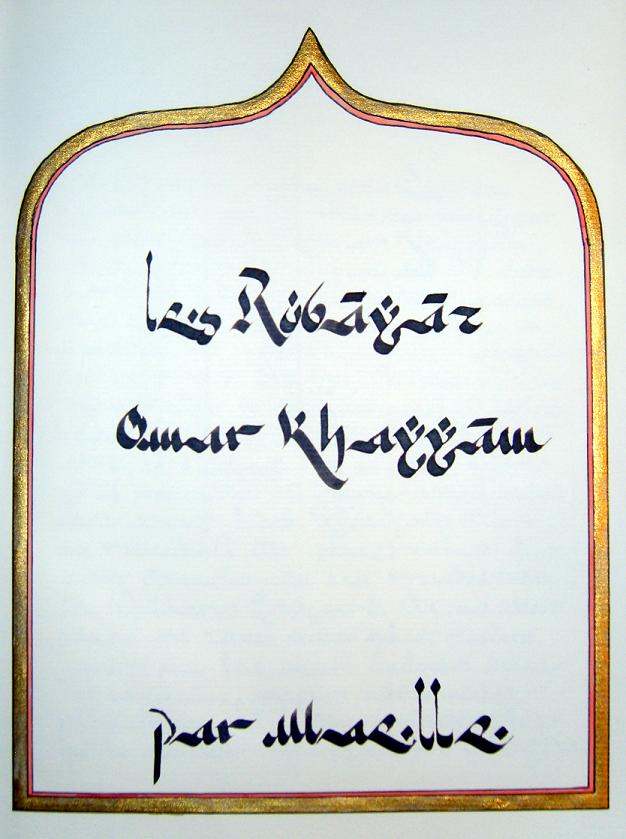 les Robāÿāt
Omar Khaÿÿām
par Maelle